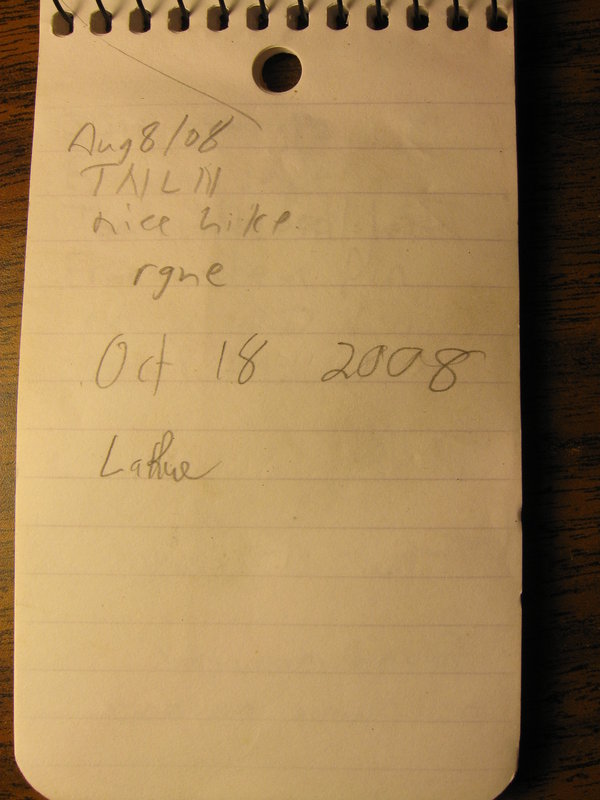 Aug 8/08
TNLN
nice hike.
rgne
Oct 18 2008